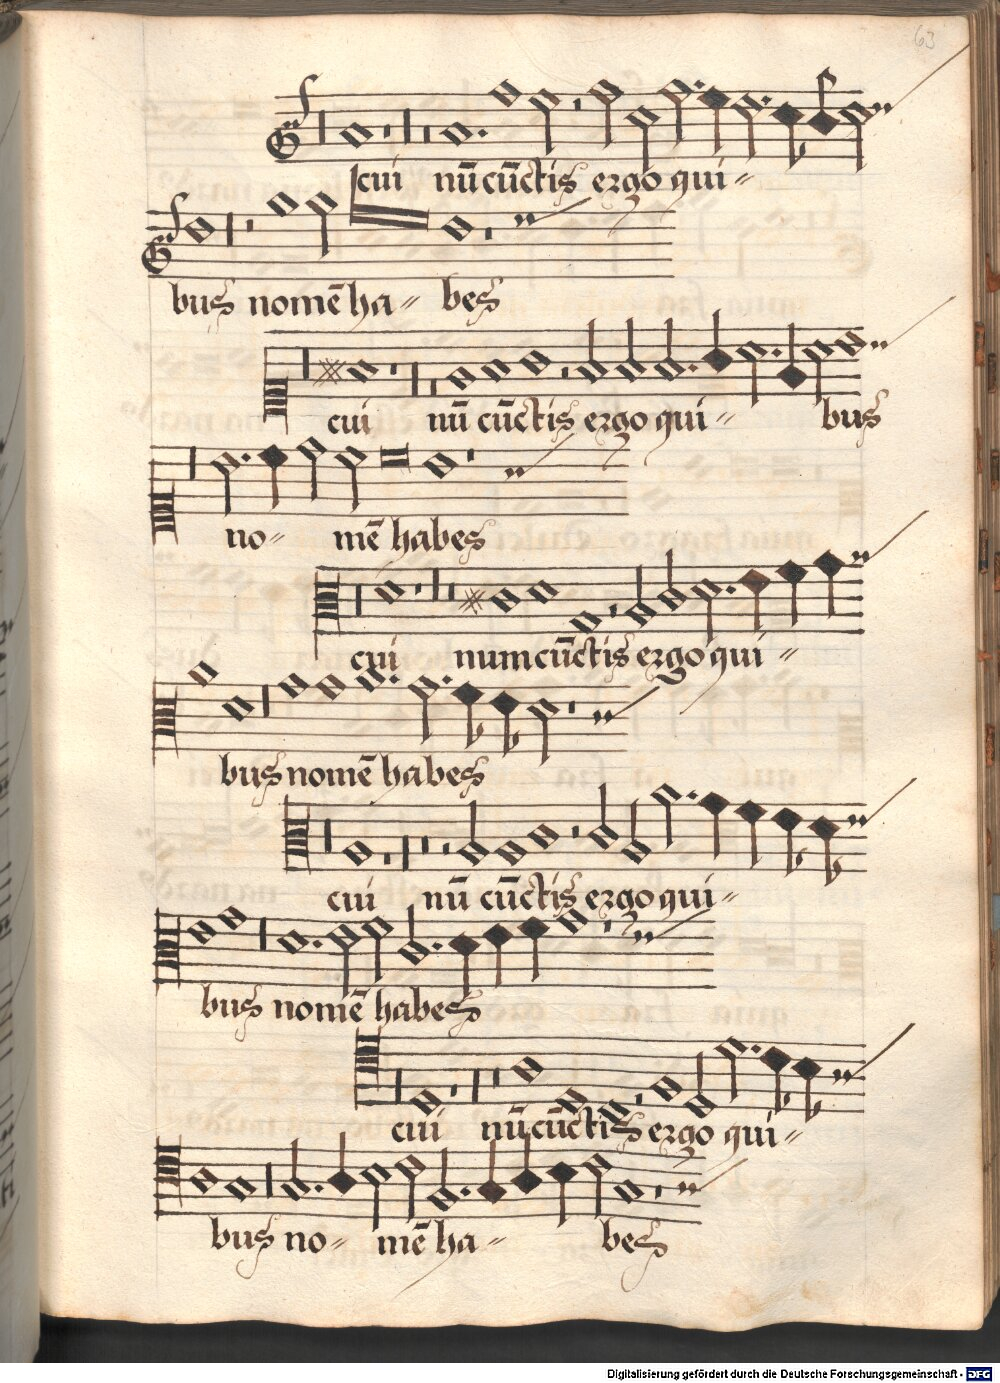 63
cui nū cūctis ergo qui-
bus nomē ha- bes
cui nū cūctis ergo qui- bus
no- mē habes
cui num cūctis ergo qui-
bus nomē habes
cui nū cūctis ergo qui-
bus nomē habes
cui nū cūctis ergo qui-
bus no- mē ha- bes
Digitalisierung gefördert durch die Deutsche Forschungsgemeinschaft - DFG